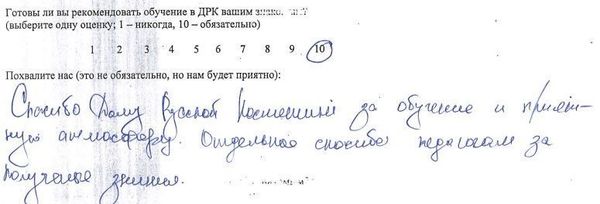 Готовы ли вы рекомендовать обучение в ДРК вашим
(выберите одну оценку; 1 – никогда, 10 – обязательно)
1 2 3 4 5 6 7 8 9 10
Похвалите нас (это не обязательно, но нам будет приятно):
Спасибо Дому Русской Косметики за обучение и прият-
ную атмосферу. Отдельное спасибо педагогам за
полученые знания.